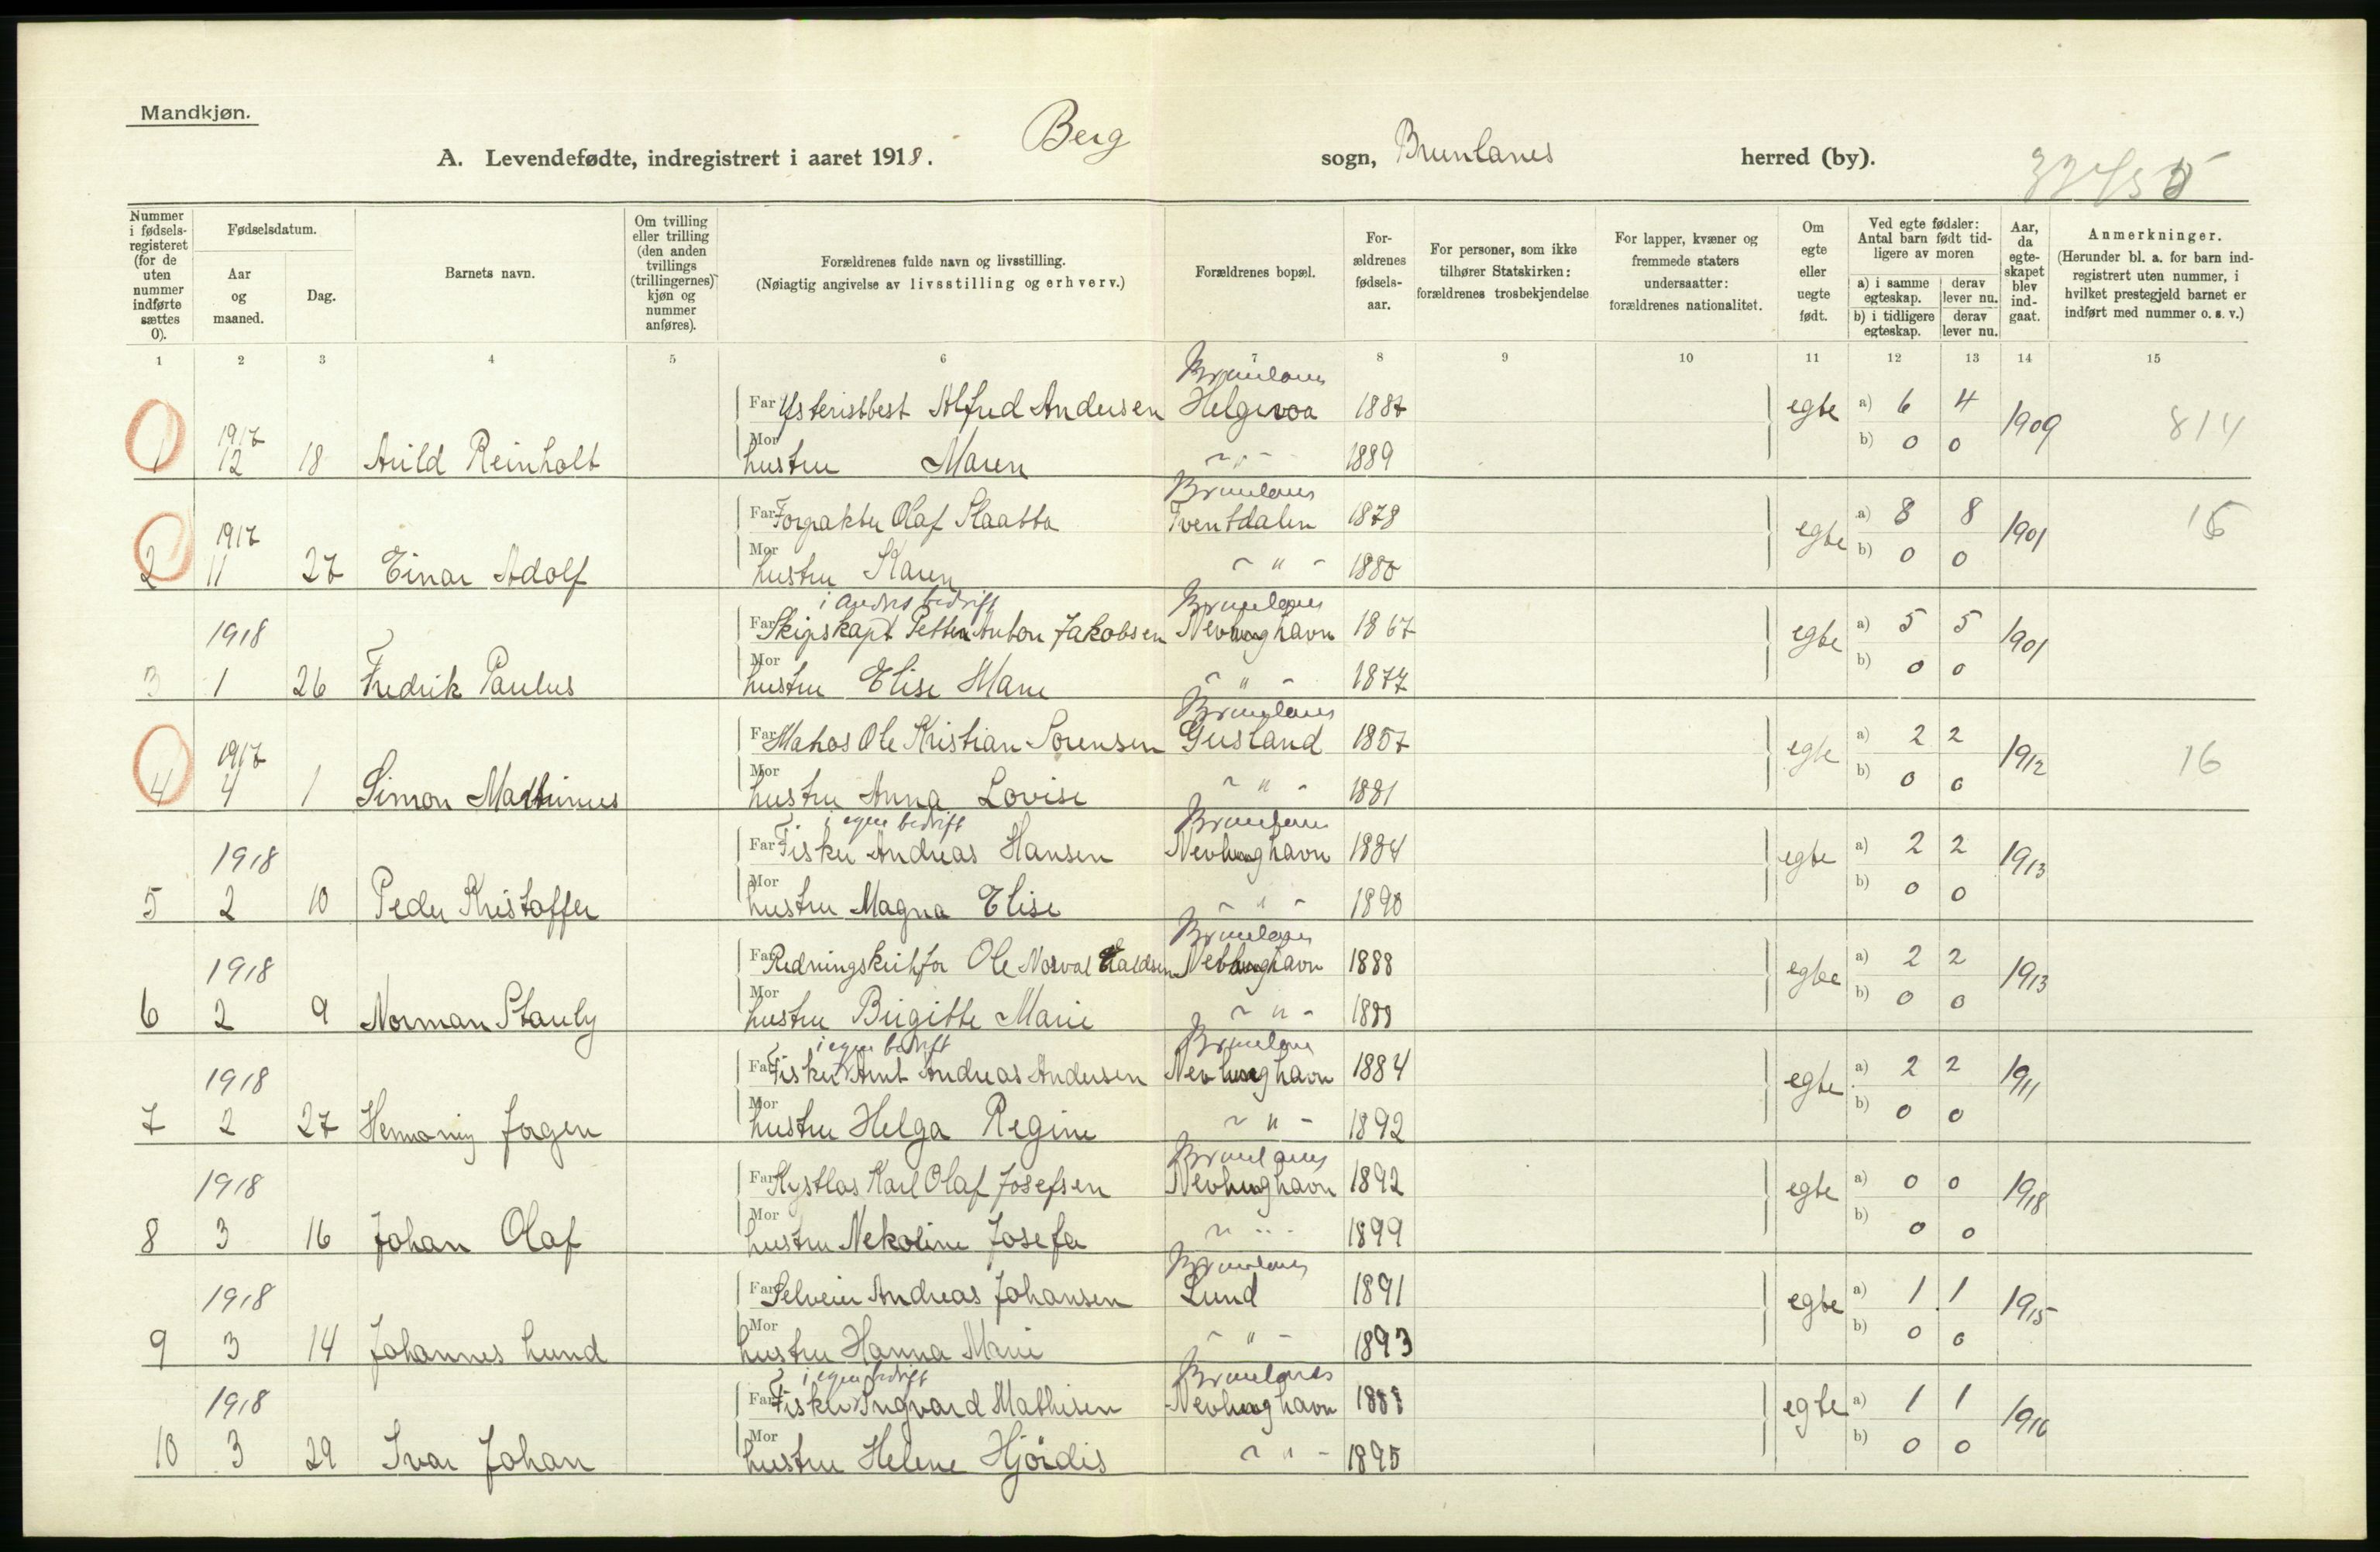 Mandkjøn.
A. Levendefødte, indregistrert i aaret 1918. Berg sogn, Brunlanes herred (by).
Nummer i fødsels-registeret (for de uten nummer indførte sættes 0).
Fødselsdatum.
Aar og maaned.
Dag.
Barnets navn.
Om tvilling eller trilling (den anden tvillings (trillingernes) kjøn og nummer anføres).
Forældrenes fulde navn og livsstilling.
(Nøiagtig angivelse av livsstilling og erhverv.)
Forældrenes bopæl.
For-ældrenes fødsels-aar.
For personer, som ikke tilhører Statskirken: forældrenes trosbekjendelse
For lapper, kvæner og fremmede staters undersaatter: forældrenes nationalitet.
Om egte eller uegte født.
Ved egte fødsler: Antal barn født tid-ligere av moren
a) i samme egteskap.
derav lever nu.
b) i tidligere egteskap.
derav lever nu.
Aar, da egte-skapet blev ind-gaat.
Anmerkninger.
(Herunder bl. a. for barn ind-registrert uten nummer, i hvilket prestegjeld barnet er indført med nummer o. s. v.)
1 2 3 4 5 6 7 8 9 10 11 12 13 14 15
Brunlanes
Far Alfred Andersen Helgeroa 1887 egte a) 6 4 1909 814
1 1917 12 18 Arild Reinholt Mor hustru Maren - " - 1889 b) 0 0
Brunlanes
Far Forpakter Olaf Slaatta Tventdalen 1878 egte a) 8 8 1901
2 1917 11 27 Einar Adolf Mor hustru Karen - " - 1880 b) 0 0
i andres bedrift Brunlanes
Far Skipskapt Petter Anton Jakobsen Nevlunghavn 1867 egte a) 5 5 1901
3 1918 1 26 Fredrik Paulus Mor hustru Elise Marie - " - 1877 b) 0 0
Brunlanes
Far Matros Ole Kristian Sørensen Gusland 1857 egte a) 2 2 1912 16
4 1917 4 1 Simon Mathinius Mor hustru Anna Lovise - " - 1881 b) 0 0
i egen bedrift Brunlanes
Far Fisker Andreas Hansen Nevlunghavn 1884 egte a) 2 2 1913
5 1918 2 10 Peder Kristoffer Mor hustru Magna Elise - " - 1890 b) 0 0
Brunlanes
Far Ole Norval Nevlunghavn 1888 egte a) 2 2 1913
6 1918 2 9 Norman Stanly Mor hustru Birgitte Marie - " - 1888 b) 0 0
i egen bedrift Brunlanes
Far Fisker Arnt Andreas Andersen Nevlunghavn 1884 egte a) 2 2 1911
7 1918 2 27 Henning Jørgen Mor hustru Helga Regine - " - 1892 b) 0 0
Brunlanes
Far Kystlos Karl Olaf Josefsen Nevlunghavn 1892 egte a) 0 0 1918
8 1918 3 16 Johan Olaf Mor hustru Nekoline Josefa - " - 1899 b) 0 0
Brunlanes
Far Selveier Andreas Johansen Lund 1891 egte a) 1 1 1915
9 1918 3 14 Johannes Lund Mor hustru Hanna Marie - " - 1893 b) 0 0
i egen bedrift Brunlanes
Far Fisker Ingvard Mathisen Nevlunghavn 1888 egte a) 1 1 1916
10 1918 3 29 Ivar Johan Mor hustru Helene Hjørdis - " - 1895 b) 0 0